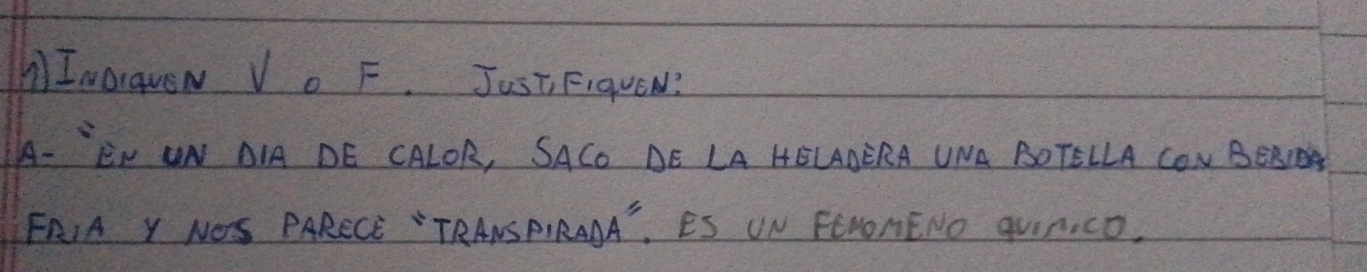 1) INDIQUEN V O F. JUSTIFIQUEN:
A- "EN UN DIA DE CALOR, SACO DE LA HELADERA UNA BOTELLA CON BEBIDA
FRIA Y NOS PARECE "TRANSPIRADA". ES UN FENOMENO QUIMICO.